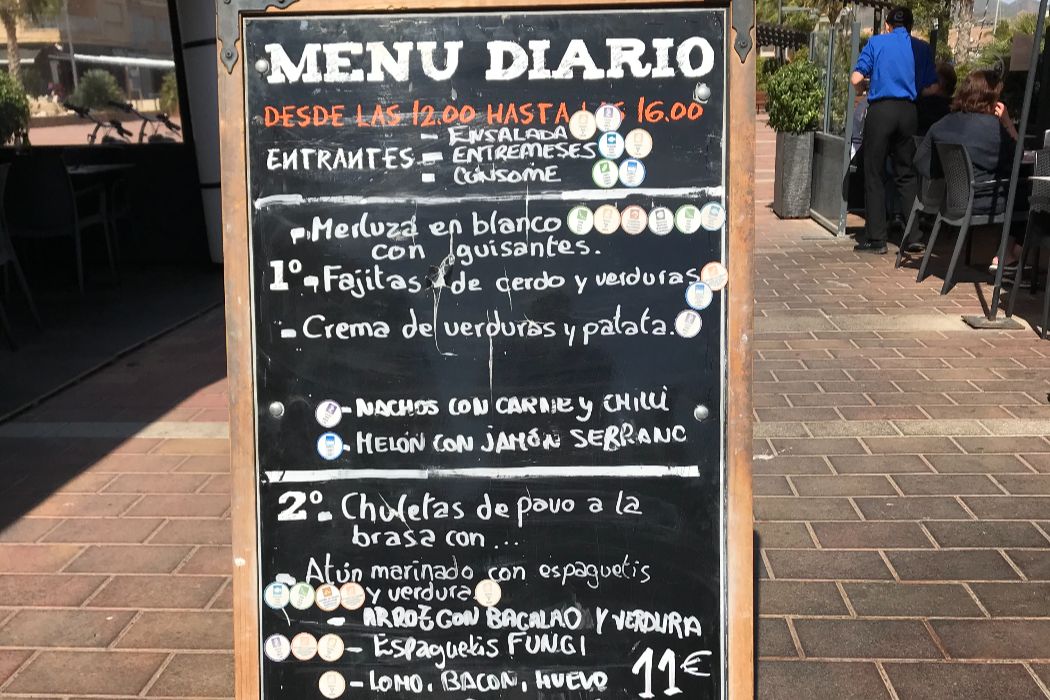 MENU DIARIO
DESDE LAS 12.00 HASTA LAS 16.00
- ENSALADA
ENTRANTES - ENTREMESES
- CONSOME
- Merluza en blanco
con guisantes.
1º - Fajitas de cerdo y verduras
- Crema de verduras y patata.
- NACHOS CON CARNE y CHILLI
- MELÓN CON JAMÓN SERRANO
2º - Chuletas de pavo a la
brasa con ...
- Atún marinado con espaguetis
y verdura
- ARROZ CON BACALAO Y VERDURA
- Espaguetis FUNGI
- LOMO, BACON, HUEVO
11€